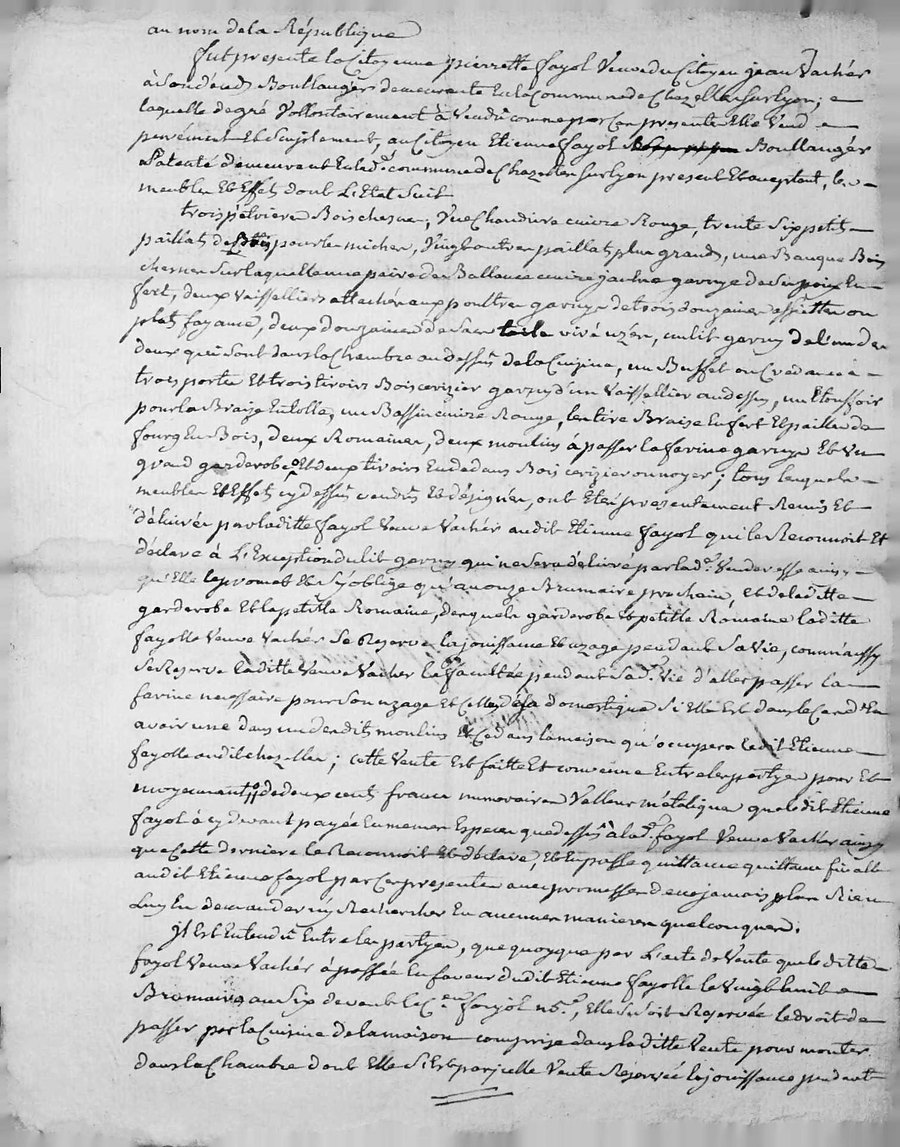 au nom de la République
fut presente la Citoyenne pierrette fayol Veuve du Citoyen jean Vachér
à Son décéds Boullangér demeurante En la Commune de Chazelle Sur lyon; 
laquelle de gré Vollontairement à Vendu comme par Ces presente Elle Vend
purément Et Simplement, au Citoyen Etienne fayol Boullangér
Patenté demeurant En lad.e commune de Chazelles Sur lyon present Et aceptant, les
meubles Et Effets dont L'Etat Suit
trois pétrieres Bois chesne, Une Chaudiere cuivre Rouge, trente Six petits
paillats pour les miches, Vingt outres paillats plus grands, une Banque Bois
chesne Sur laquelle une paire de Ballance cuivre jaulne garnye de Ses poix En
fert, deux Vaisselliers attachés aux poultres garnys de trois douzaines assiettes ou
plats fayance, deux douzaines de Sacs toile uzés, un lit garny de l'un des
deux qui Sont dans la Chambre au dessus de la Cuizine, un Buffet ou Credance à
trois portes Et trois tiroirs Bois cerizier garny d'un Vaissellier au dessus, un Etouffoir
pour la Braize En tolle, un Bassin cuivre Rouge, les tire Braize En fert Et pailles de
fourg En Bois, deux Romaines, deux moulins à passer la farine garnys Et Un
grand garderobe Et deux tiroirs En dedans Bois cerizier ou noyer; tous lesquels
meubles Et Effets cy dessus vendus Et désignés, ont Eté présentement Remis Et
délivrés par laditte fayol Veuve Vachér audit Etienne fayol qui le Reconnoit Et
déclare à L'Exception du lit garny qui ne Sera délivré par lad.e Venderesse ainsy
qu'Elle le promet Et S'y oblige qu'au onze Brumaire prochain, Et de laditte
garderobe Et la petitte Romaine, desquels garderobe Et petitte Romaine laditte
fayolle Veuve Vachér Se Reserve la jouissance Et uzage pendant Sa Vie, comm'aussy
Se Reserve laditte Veuve Vacher la facultée pendant Sad.e Vie d'aller passer la
farine nessaire pour Son uzage Et Celluy de Sa domestique Si Elle Est dans le Cas d'En
avoir une dans un desdits moulins Et Ce dans la maison qu'occupera ledit Etienne
fayolle audit chazelles; cette Vente Est faitte Et convenue Entre les partyes pour Et
moyennant de deux cents francs numeraires Valleur métalique que ledit Etienne
fayol à cy devant payée En memes Especes que dessus à lad.e fayol Veuve Vachér ainsy
que Cette derniere le Reconnoit Et déclare, Et En passe quittance
audit Etienne fayol par Ces presentes avec promesse de ne jamais plus Rien
Luy En demander ny Rechercher En aucunes manieres quelconques.
jl Est Entendu Entre les partyes, que quoyque par L'acte de Vente que laditte
fayol Veuve Vachér à passée En faveur dudit Etienne fayolle le Vingt huit
Brumaire an Six devant le C.en n.re, Elle S'soit Reservée le droit de
passer par la Cuisine de la maison comprise dans laditte Vente pour monter
dans la Chambre dont Elle S'Est par jcelle Vente Reservée la jouissance pendant